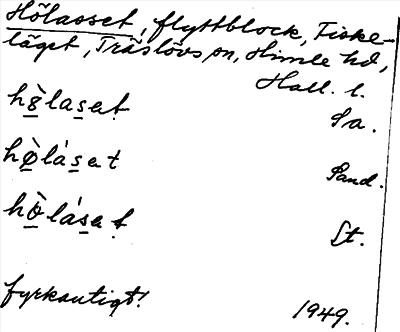 Hölasset, flyttblock, Fiske-
läget, Träslövs sn, Himle hd,
Hall. l.
hö̀laset Sa.
hø̀láset Sand.
hö̀láset St.
fyrkantigt! 1949.